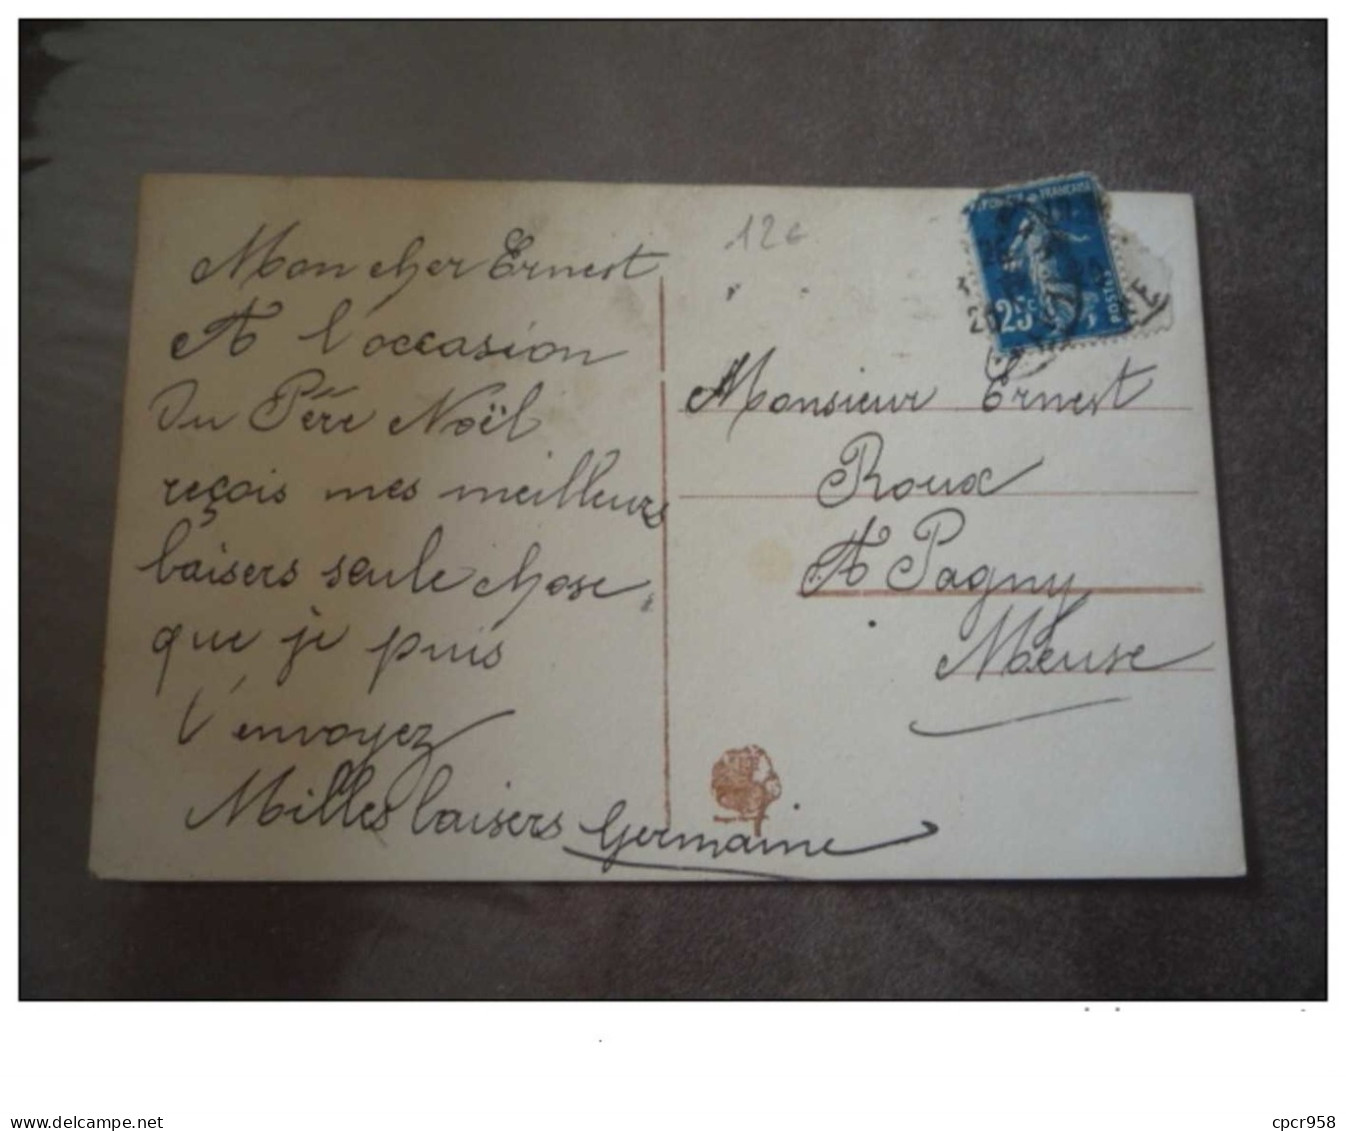 Mon cher Ernest
A l'occasion
Du Père Noël
reçois mes meilleurs
baisers seule chose
que je puis
t'envoyez
Milles baisers Germaine
12e
25c
POSTES
Monsieur Ernest
Roux
A Pagny
Meuse
www.delcampe.net
cpcr958